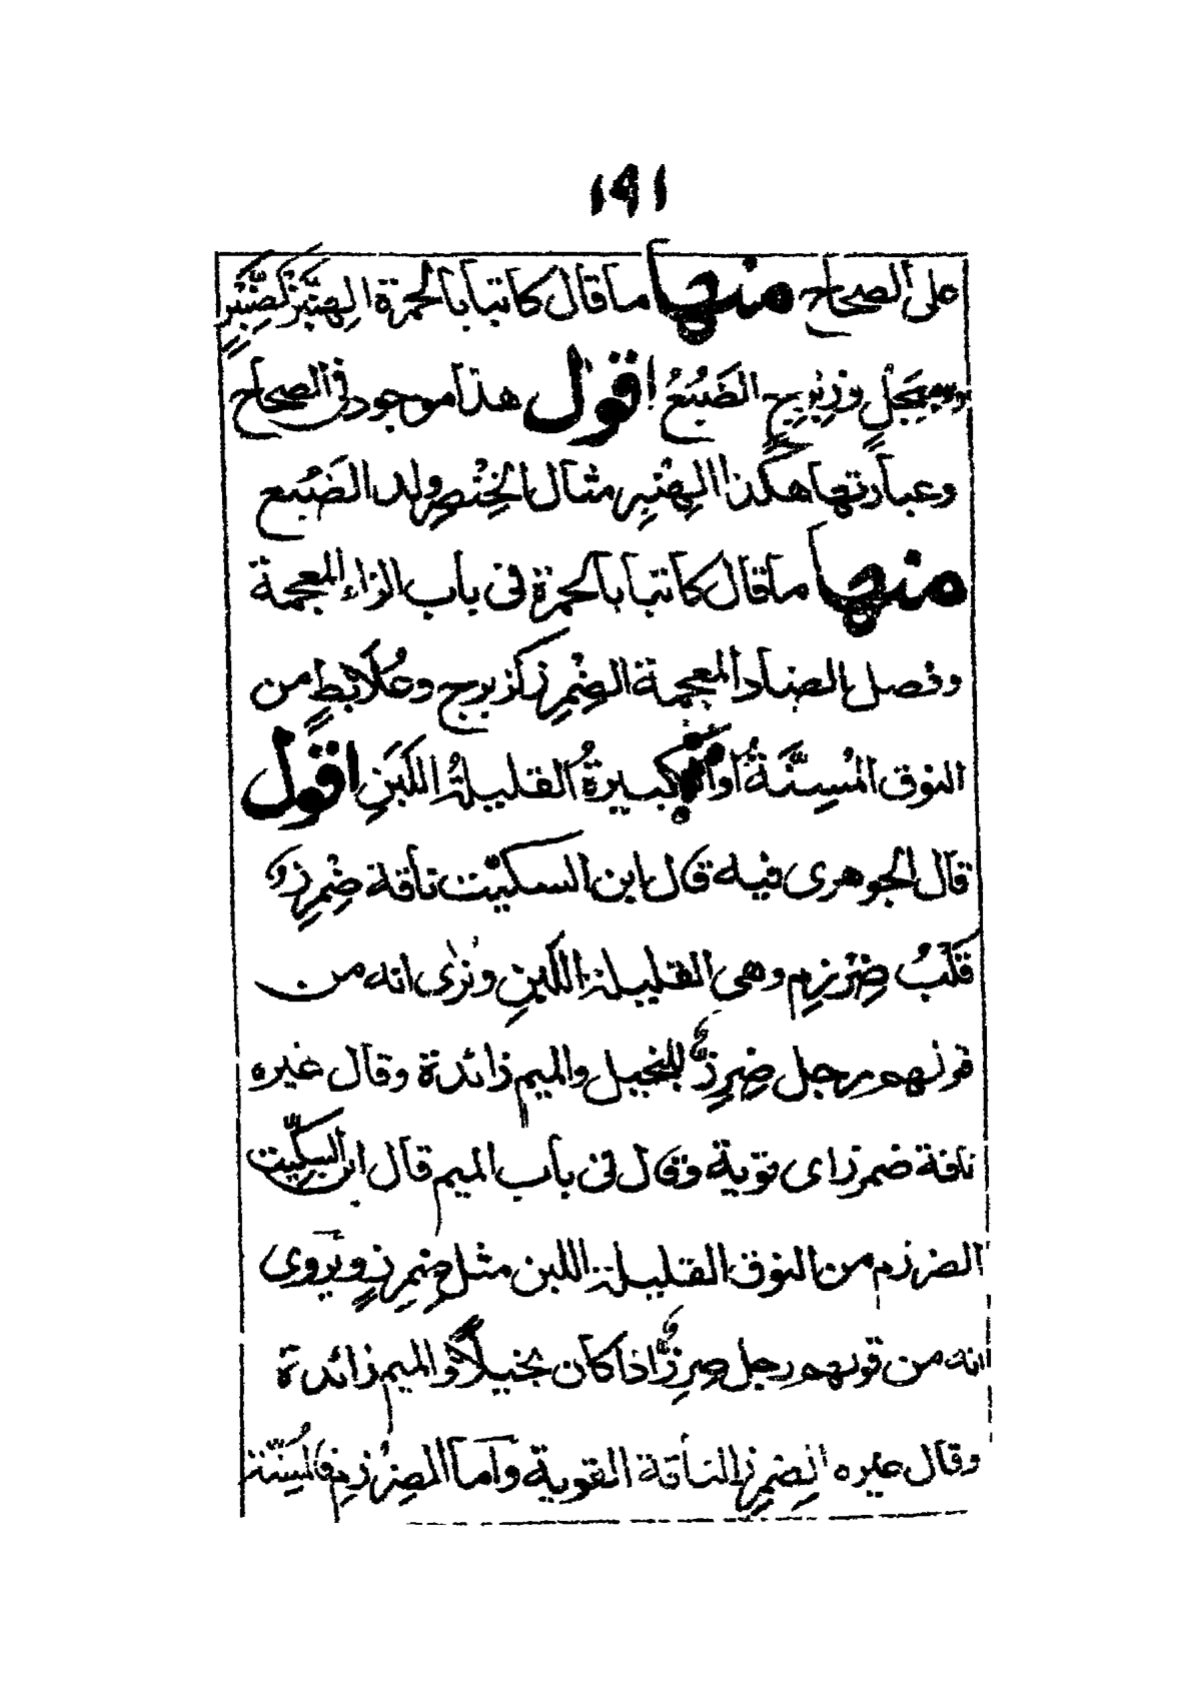 ١٩١
على الصحاح منها ما قال كاتبا بالحمرة الهِنَّبْر كصِنَّبْرٍ
وسِبَحْلٍ وزِبْرِجٍ الضَبُعُ اقول هذا موجود فى الصحاح
وعبارتها هكذا الهِنْبِر مثال الخِنْصِر ولد الضَبُع
منها ما قال كاتبا بالحمرة فى باب الزاء المعجمة
وفصل الضاد المعجمة الضِمْرِز كزبرج وعُلَابِطٍ من
النوق المُسِنَّةُ او الكبيرةُ القليلةُ اللَبَنِ اقول
قال الجوهرى فيه قال ابن السكيت ناقة ضِمْرِزٌ
قَلْبُ ضِرْزِمٍ وهى القليلة اللبنِ ونرى انه من
قولهم رجل ضِرِزٌّ للبخيل والميم زائدة وقال غيره
ناقة ضمرز اى قوية وقال فى باب الميم قال ابن السِكِّيت
الضرزم من النوق القليلة اللبن مثل ضِمْرِزٍ ويروى
انه من قولهم رجل ضِرِزٌّ اذا كان بخيلاً والميم زائدة
وقال غيره الضِمرِز الناقة القوية وأما الضِرْزِم فالمُسِنَّة